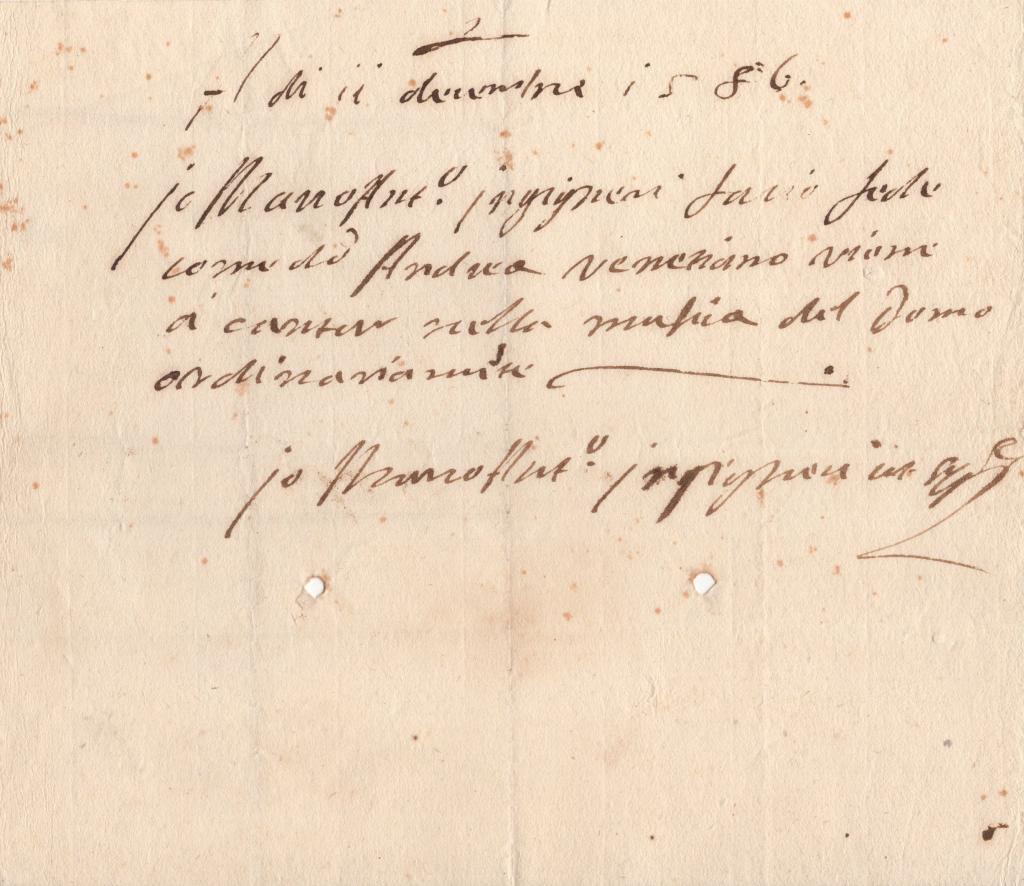 A di ii decembre 1586.
jo Marc Ant.o jngignieri faccio fede
come do Andrea venetiano viene
a cantar nella musica del Domo
ordinariamẽte
jo Marc Ant.o jngignieri